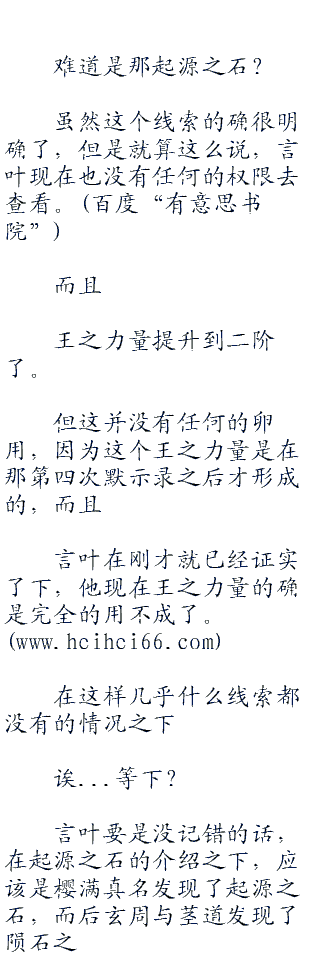 难道是那起源之石？
虽然这个线索的确很明
确了，但是就算这么说，言
叶现在也没有任何的权限去
查看。(百度“有意思书
院”)
而且
王之力量提升到二阶
了。
但这并没有任何的卵
用，因为这个王之力量是在
那第四次默示录之后才形成
的，而且
言叶在刚才就已经证实
了下，他现在王之力量的确
是完全的用不成了。
(www.hcihci66.com)
在这样几乎什么线索都
没有的情况之下
诶...等下？
言叶要是没记错的话，
在起源之石的介绍之下，应
该是樱满真名发现了起源之
石，而后玄周与茎道发现了
陨石之